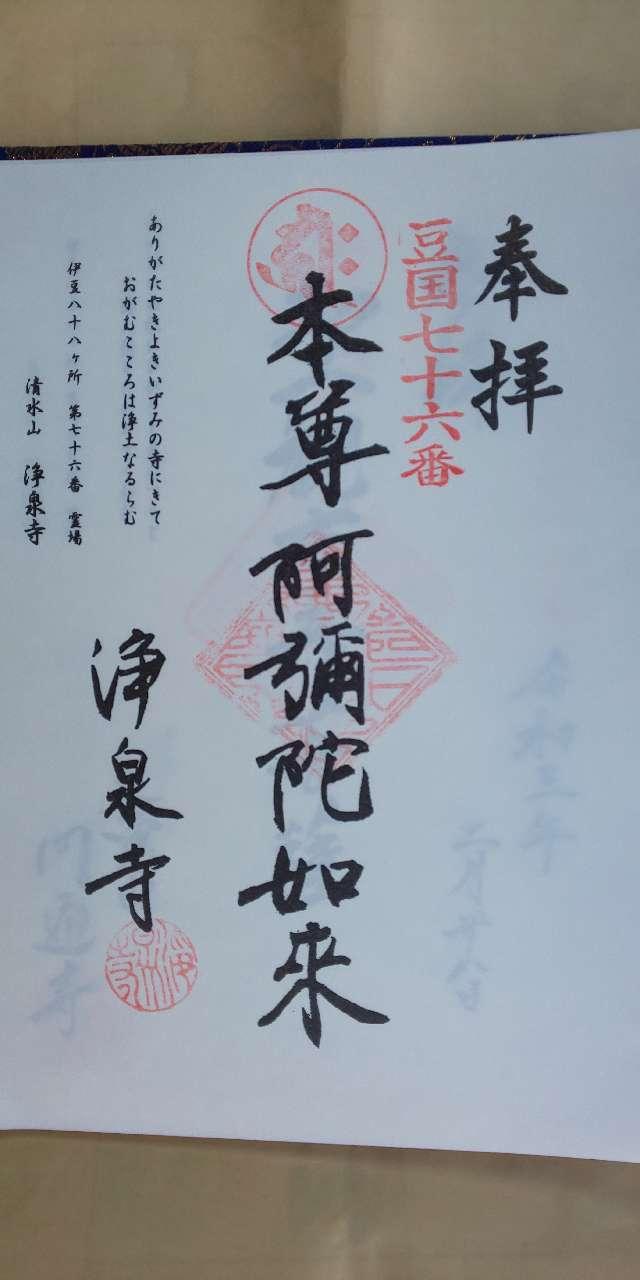 奉拝
豆国七十六番
本尊阿彌陀如來
ありがたやきよきいずみの寺にきて
おがむこころは浄土なるらむ
伊豆八十八ヶ所 第七十六番 霊場
清水山 浄泉寺
浄泉寺